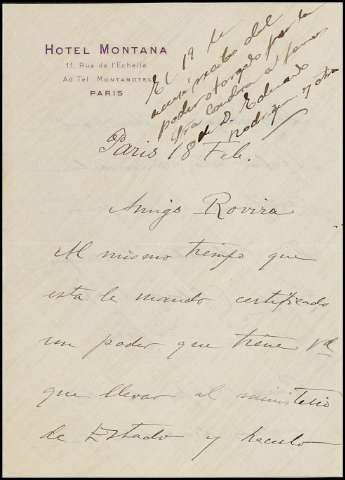 HOTEL MONTANA
11, Rue de l'Echelle
Ad. Tel. MONTANOTEL
PARIS
El 19 le
acusé recibo del
poder otorgado por la
Sra condesa al favor
de D. Eduardo
Rodriguez y otro
Paris 18 Feb.
Amigo Rovira
Al mismo tiempo que
esta le mando certificado
un poder que tiene Vd
que llevar al ministerio
de Estado y hacerlo